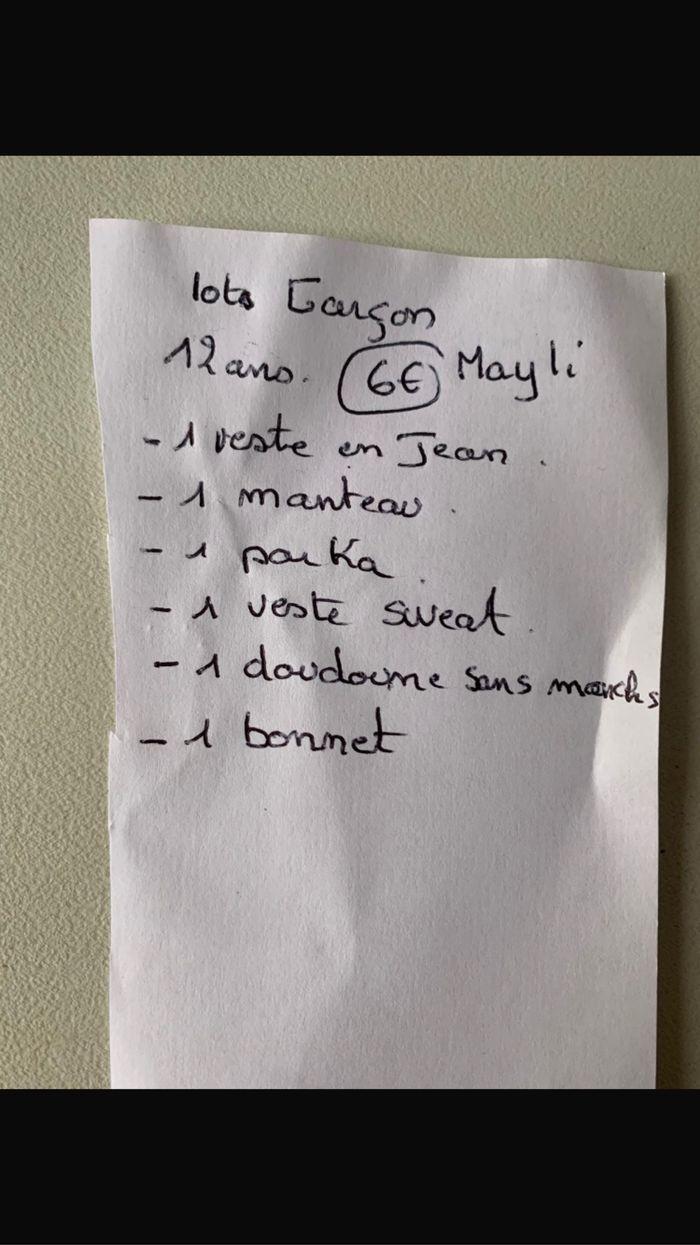 lots Garçon
12 ans. 6€ Mayli
- 1 veste en Jean.
- 1 manteau.
- 1 parka.
- 1 veste sweat.
- 1 doudoune sans manchs
- 1 bonnet